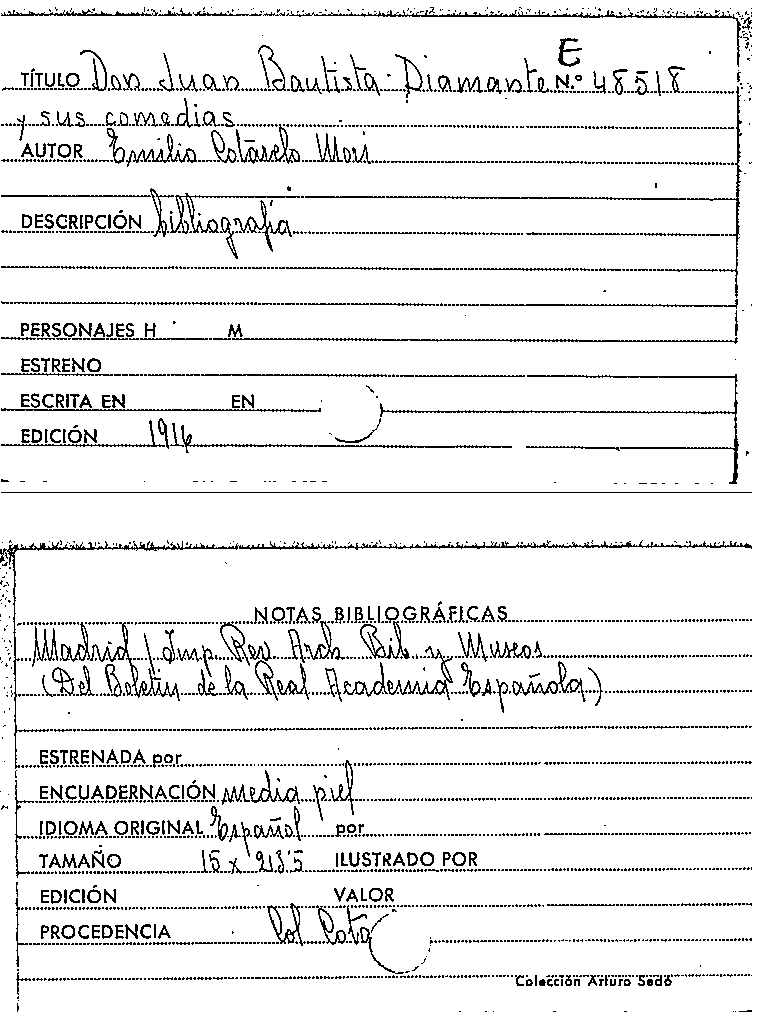 E
TÍTULO Don Juan Bautista Diamante N.º 48518
y sus comedias
AUTOR Emilio Cotarelo Mori
DESCRIPCIÓN bibliografía
PERSONAJES H M
ESTRENO
ESCRITA EN EN
EDICIÓN 1916
NOTAS BIBLIOGRÁFICAS
Madrid / Imp Rev Arch Bib y Museos
(Del Boletín de la Real Academia Española)
ESTRENADA por
ENCUADERNACIÓN media piel
IDIOMA ORIGINAL Español por
TAMAÑO 15 x 21'5 ILUSTRADO POR
EDICIÓN VALOR
PROCEDENCIA Col Cota
Colección Arturo Sedó